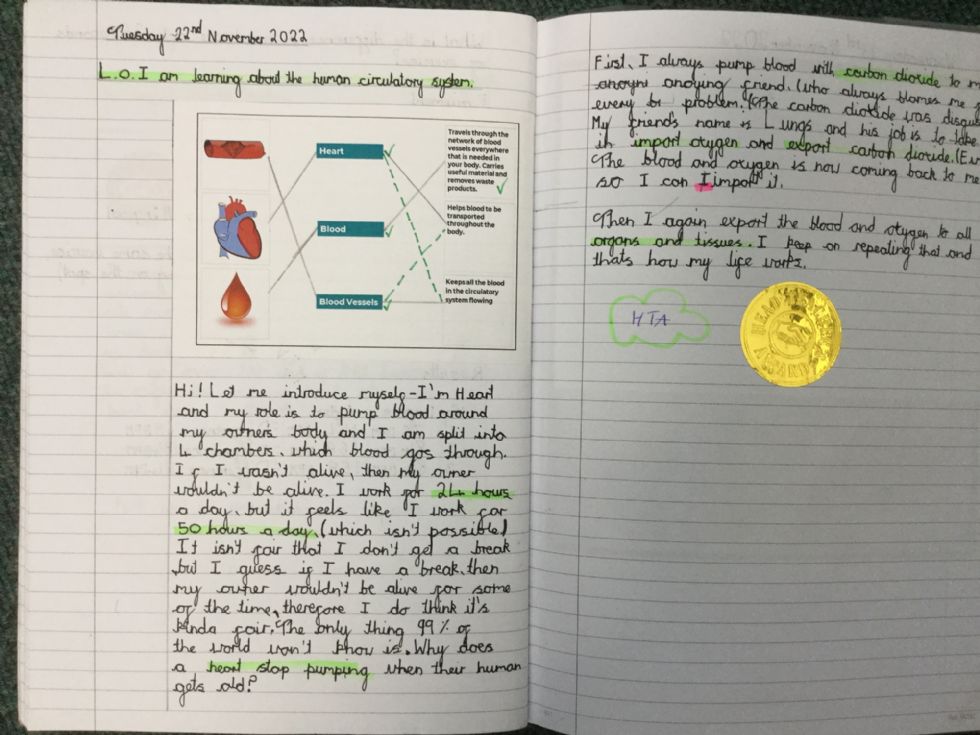 Tuesday 22nd November 2022
L.O. I am learning about the human circulatory system.
Heart
Blood
Blood Vessels
Travels through the
network of blood
vessels everywhere
that is needed in
your body. Carries
useful material and
removes waste
products.
Helps blood to be
transported
throughout the
body.
Keeps all the blood
in the circulatory
system flowing
Hi! Let me introduce myself - I'm Heart
and my role is to pump blood around
my owners body and I am split into
4 chambers, which blood gos through.
If I wasn't alive, then my owner
wouldn't be alive. I work for 24 hours
a day, but it feels like I work for
50 hours a day. (which isn't possible)
It isn't fair that I don't get a break
but I guess if I have a break, then
my owner wouldn't be alive for some
of the time, therefore I do think it's
kinda fair. The only thing 99% of
the world won't know is. Why does
a heart stop pumping when their human
gets old?
First, I always pump blood with carbon dioxide to
anoyni anoying friend. (who always blames me
every problem. The carbon dioxide was
My friend's name is Lungs and his job is to take
in import oxygen and export carbon dioxide.
The blood and oxygen is now coming back to me
so I can Iimport it.
Then I again export the blood and oxygen to all
organs and tissues. I keep on repeating that and
thats how my life works.
HTA
HEAD
AWARD